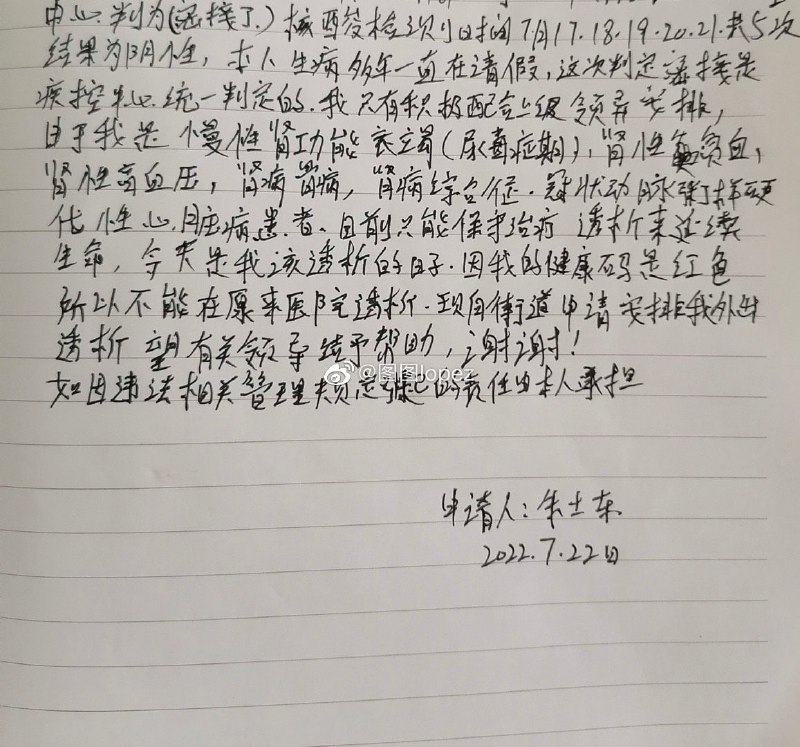 中心判为(密接了.)核酸经检测时间7月17.18.19.20.21.共5次
结果为阴性，本人生病多年一直在请假，这次判定密接是
疾控中心统一判定的.我只有积极配合上级领导安排，
由于我是慢性肾功能衰竭(尿毒症期)，肾性贫血，
肾性高血压，肾病胃病，肾病综合征.冠状动脉粥样硬
化性心脏病患者、目前只能保守治疗透析来延续
生命，今天是我该透析的日子.因我的健康码是红色
所以不能在原来医院透析.现向街道申请安排我外出
透析望有关领导给予帮助，谢谢！
@图图lopez
如因违法相关管理规定引起的责任由本人承担
申请人：朱士东
2022.7.22日